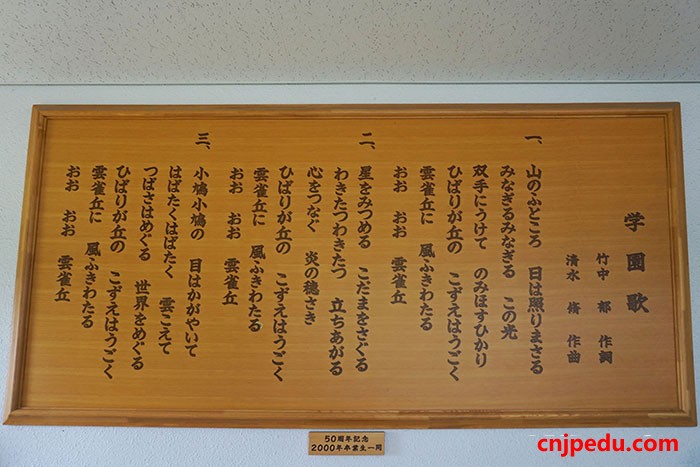 学園歌
竹中 郁 作詞
清水 脩 作曲
一、
山のふところ 日は照りまさる
みなぎるみなぎる この光
双手にうけて のみほすひかり
ひばりが丘の こずえはうごく
雲雀丘に 風ふきわたる
おお おお 雲雀丘
二、
星をみつめる こだまをさぐる
わきたつわきたつ 立ちあがる
心をつなぐ 炎の穂さき
ひばりが丘の こずえはうごく
雲雀丘に 風ふきわたる
おお おお 雲雀丘
三、
小鳩小鳩の 目はかがやいて
はばたくはばたく 雲こえて
つばさはめぐる 世界をめぐる
ひばりが丘の こずえはうごく
雲雀丘に 風ふきわたる
おお おお 雲雀丘
50周年記念
2000年卒業生一同
cnjpedu.com